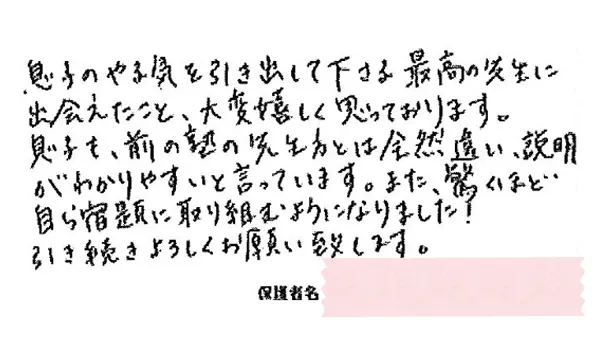 息子のやる気を引き出して下さる最高の先生に
出会えたこと、大変嬉しく思っております。
息子も、前の塾の先生方とは全然違い、説明
がわかりやすいと言っています。また、驚くほど
自ら宿題に取り組むようになりました!
引き続きよろしくお願い致します。
保護者名